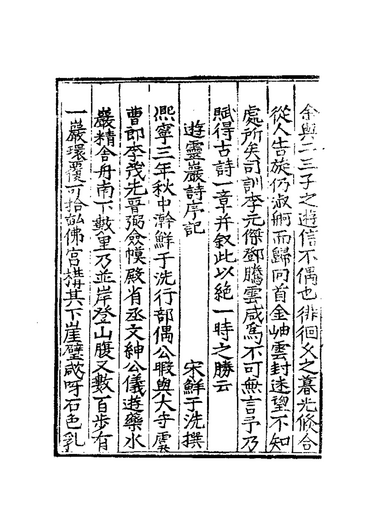 余與二三子之遊信不偶也徘徊久之暮光倏合
從人告旋仍淑舸而歸回首金岫雲封迷望不知
處所矣司訓李元傑鄧騰雲咸篤不可無言予乃
賦得古詩一章并叙此以絶一時之勝云
遊靈巖詩序記
宋鮮于洗撰
熙寧三年秋中澣鮮于洗行部偶公暇與大寺
曹郎李幾先晉弼僉幙殿省丞文紳公儀遊藥水
巖精舍舟南下數里乃並岸登山腹又數百步有
一巖環覆可拾畝佛宫搆其下崖壁諴呀石色乳